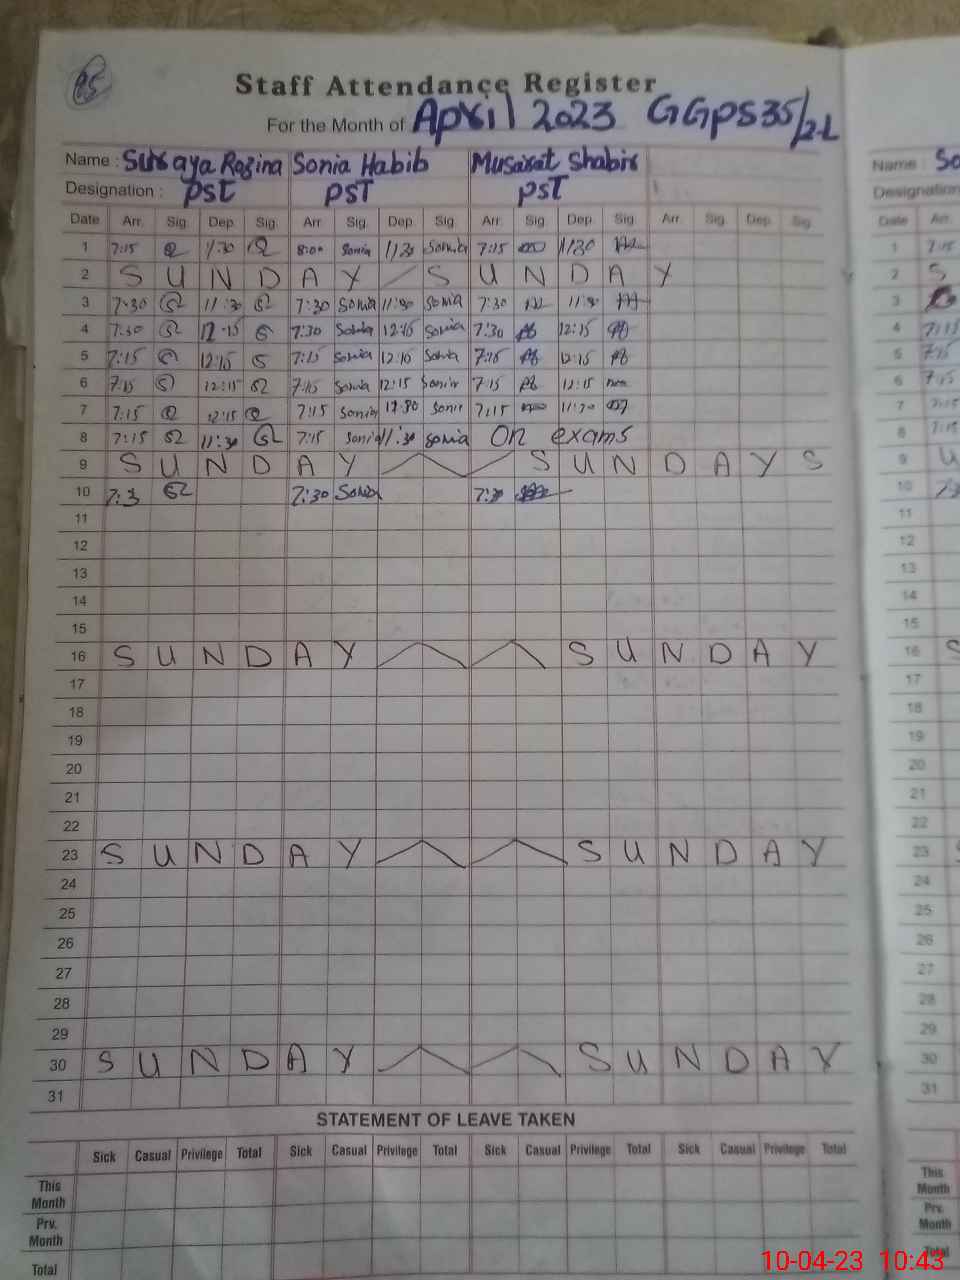 95
Staff Attendance Register
For the Month of April 2023 GGPS 35/2-L
Name : Suraya Rozina Sonia Habib Musarat Shabir
Designation : PST PST PST
Date Arr. Sig. Dep. Sig. Arr. Sig. Dep. Sig. Arr. Sig. Dep. Sig. Arr. Sig. Dep. Sig.
1 7:15 11:30 8:00 Sonia 11:30 Sonia 7:15 11:30
2 S U N D A Y S U N D A Y
3 7:30 11:30 7:30 Sonia 11:30 Sonia 7:30 11:30
4 7:30 12:15 7:30 Sonia 12:15 Sonia 7:30 12:15
5 7:15 12:15 7:15 Sonia 12:15 Sonia 7:15 12:15
6 7:15 12:15 7:15 Sonia 12:15 Sonia 7:15 12:15
7 7:15 12:15 7:15 Sonia Sonia 7:15 11:30
8 7:15 11:30 7:15 Sonia 11:30 Sonia On exams
9 S U N D A Y S U N D A Y S
10 7:3 7:30 Sonia 7:30
11
12
13
14
15
16 S U N D A Y S U N D A Y
17
18
19
20
21
22
23 S U N D A Y S U N D A Y
24
25
26
27
28
29
30 S U N D A Y S U N D A Y
31
STATEMENT OF LEAVE TAKEN
Sick Casual Privilege Total Sick Casual Privilege Total Sick Casual Privilege Total Sick Casual Privilege Total
This Month
Prv. Month
Total
Name : So
Designation
Date Arr.
1 7:15
2 S
3
4 7:15
5 7:15
6 7:15
7 7:15
8 7:15
9 U
10
11
12
13
14
15
16 S
17
18
19
20
21
22
23 S
24
25
26
27
28
29
30
31
Sick
This Month
Prv. Month
Total
10-04-23 10:43